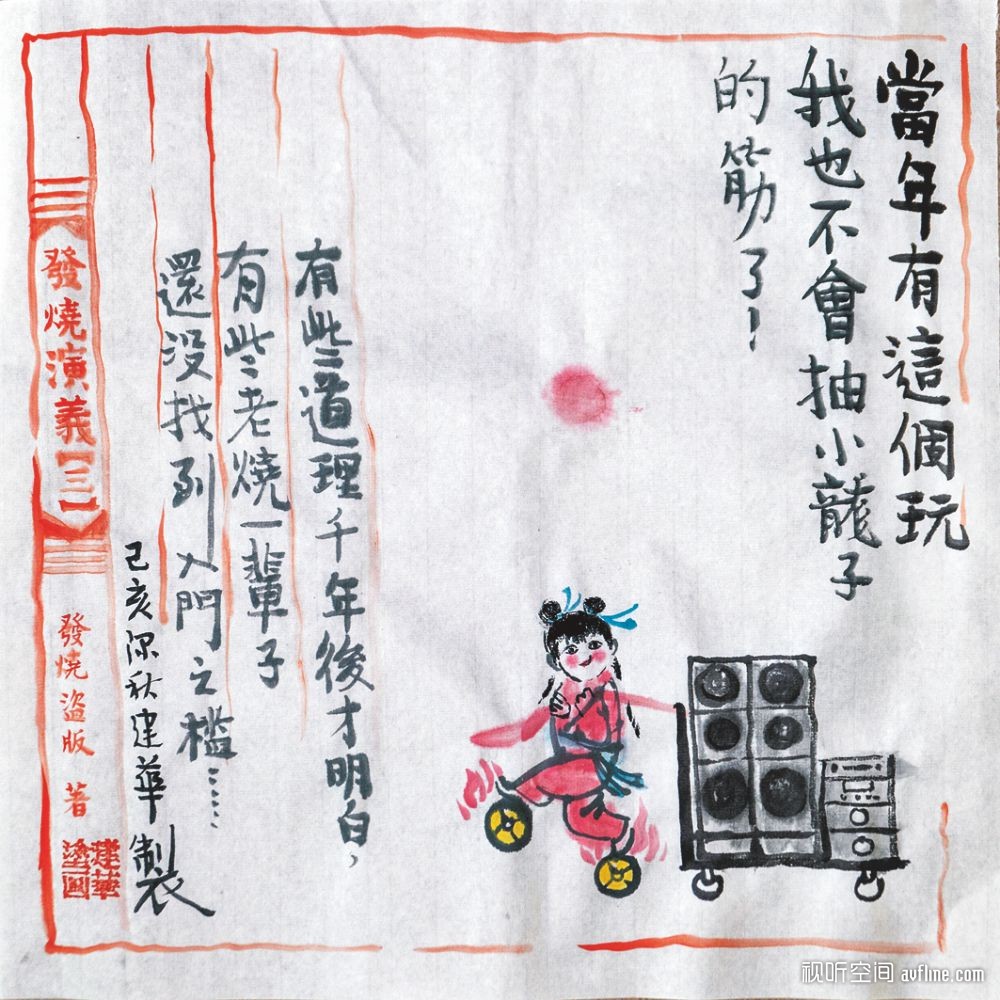 當年有這個玩
我也不會抽小龍子
的筋了！
有些道理千年後才明白，
有些老燒一輩子
還没找到入門之檻……
己亥深秋建華製
發燒演義【三】
發燒盜版 著
建華塗圖
视听空间 avfline.com